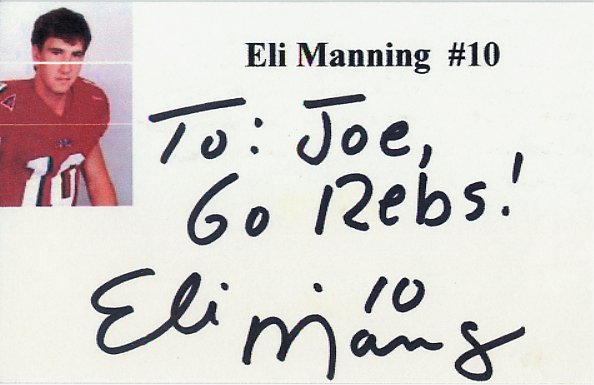 Eli Manning #10
To: Joe,
Go Rebs!
Eli Manning 10
10